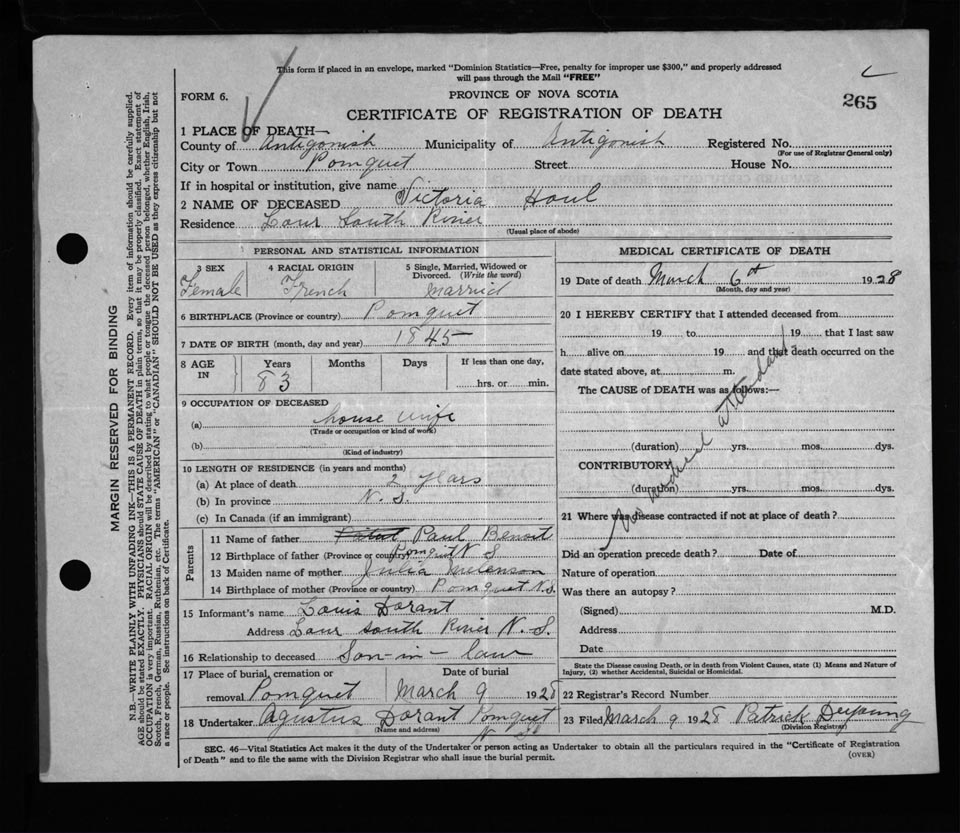 This form if placed in an envelope, marked "Dominion Statistics—Free, penalty for improper use $300," and properly addressed
will pass through the Mail "FREE"
FORM 6.
PROVINCE OF NOVA SCOTIA
265
CERTIFICATE OF REGISTRATION OF DEATH
1 PLACE OF DEATH—
County of Antigonish Municipality of Antigonish Registered No.
(For use of Registrar General only)
City or Town Pomquet Street House No.
If in hospital or institution, give name
2 NAME OF DECEASED Victoria Houl
Residence Lour South River
(Usual place of abode)
PERSONAL AND STATISTICAL INFORMATION
3 SEX 4 RACIAL ORIGIN 5 Single, Married, Widowed or
Divorced. (Write the word)
Female French married
6 BIRTHPLACE (Province or country) Pomquet
7 DATE OF BIRTH (month, day and year) 1845
8 AGE IN Years Months Days If less than one day,
83 hrs. or min.
9 OCCUPATION OF DECEASED
(a) house wife
(Trade or occupation or kind of work)
(b)
(Kind of industry)
10 LENGTH OF RESIDENCE (in years and months)
(a) At place of death 2 years
(b) In province N. S.
(c) In Canada (if an immigrant)
Parents
11 Name of father Paul Benoit
12 Birthplace of father (Province or country) Pomquet N S
13 Maiden name of mother Julia Melenson
14 Birthplace of mother (Province or country) Pomquet N.S.
15 Informant's name Louis Dorant
Address Lour South River N. S.
16 Relationship to deceased Son-in-law
17 Place of burial, cremation or Date of burial
removal Pomquet March 9 1928
18 Undertaker Agustus Dorant Pomquet
(Name and address) N S
MEDICAL CERTIFICATE OF DEATH
19 Date of death March 6th 1928
(Month, day and year)
20 I HEREBY CERTIFY that I attended deceased from
19 to 19 that I last saw
h alive on 19 and that death occurred on the
date stated above, at m.
The CAUSE of DEATH was as follows:—
No medical attendant
(duration) yrs. mos. dys.
CONTRIBUTORY
(duration) yrs. mos. dys.
21 Where was disease contracted if not at place of death?
Did an operation precede death? Date of
Nature of operation
Was there an autopsy?
(Signed) M.D.
Address
Date
State the Disease causing Death, or in death from Violent Causes, state (1) Means and Nature of
Injury, (2) whether Accidental, Suicidal or Homicidal.
22 Registrar's Record Number
23 Filed March 9 1928 Patrick DeYoung
(Division Registrar)
SEC. 46—Vital Statistics Act makes it the duty of the Undertaker or person acting as Undertaker to obtain all the particulars required in the "Certificate of Registration
of Death" and to file the same with the Division Registrar who shall issue the burial permit.
(OVER)
MARGIN RESERVED FOR BINDING
N.B.—WRITE PLAINLY WITH UNFADING INK—THIS IS A PERMANENT RECORD. Every item of information should be carefully supplied.
AGE should be stated EXACTLY. PHYSICIANS should STATE CAUSE OF DEATH in plain terms, so that it may be properly classified. Exact statement of
OCCUPATION is very important. RACIAL ORIGIN will be described by stating to what people or tongue the deceased person belonged, whether English, Irish,
Scotch, French, German, Russian, Ruthenian, etc. The terms "AMERICAN" or "CANADIAN" SHOULD NOT BE USED as they express citizenship but not
a race or people. See instructions on back of Certificate.